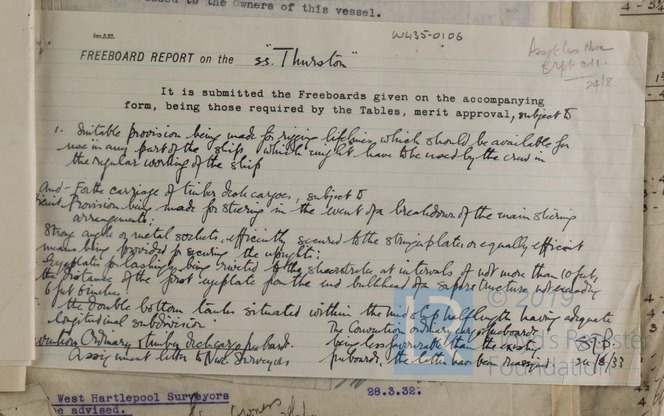 to the Owners of this vessel.
W435-0106
FREEBOARD REPORT on the "ss. Thurston"
24/8
It is submitted the Freeboards given on the accompanying
form, being those required by the Tables, merit approval, subject to
1. Suitable provision being made for rigging lifelines which should be available for
use in any part of the ship which might have to be used by the crew in
the regular working of the ship
And - For the carriage of timber deck cargoes, subject to
Provision being made for steering in the event of a breakdown of the main steering
arrangements:
Strong angle or metal sockets, efficiently secured to the stringer plate, or equally efficient
means being provided for securing the uprights:
Eyeplates for lashings being riveted to the sheerstrake at intervals of not more than 10 feet,
the distance of the first eyeplate from the end bulkhead of a superstructure not exceeding
6 feet 6 inches
the double bottom tanks situated within the midship half length having adequate
longitudinal subdivision
The Convention ordinary cargo freeboards
Ordinary & timber deck cargo freeboard.
being less favourable than the existing
Assignment letter to Nwc. Surveyors
freeboards, the latter have been reassigned
© 2019
Lloyd's Register
Foundation
West Hartlepool Surveyors
be advised.
28.3.32.
owners